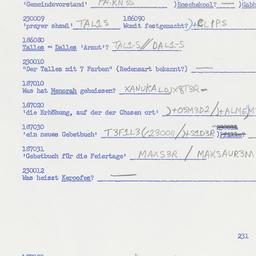 'Gemeindevorstand' PARN3S )Boschekool? — )Gabb
230009 1.86090
'prayer shawl' TAL1S Womit festgemacht? )+CLIPS
1.86080
Tallem = Dallem 'Armut'? TAL1-S // DAL1-S
230010
"Der Tallem mit 7 Farben" (Redensart bekannt?) —
1.87010
Was hat Menorah geheissen? XANUKALOJX8T3R-
1.87020
'die Erhöhung, auf der der Chasen ort' )+O5M3D2 / +ALMEM
1.87030
'ein neues Gebetbuch' T3F1L3 (230011) +S1D3R
1.87031
'Gebetbuch für die Feiertage' MAXS3R / MAXSAUR3M
230012
Was heisst Keroofem? —
231